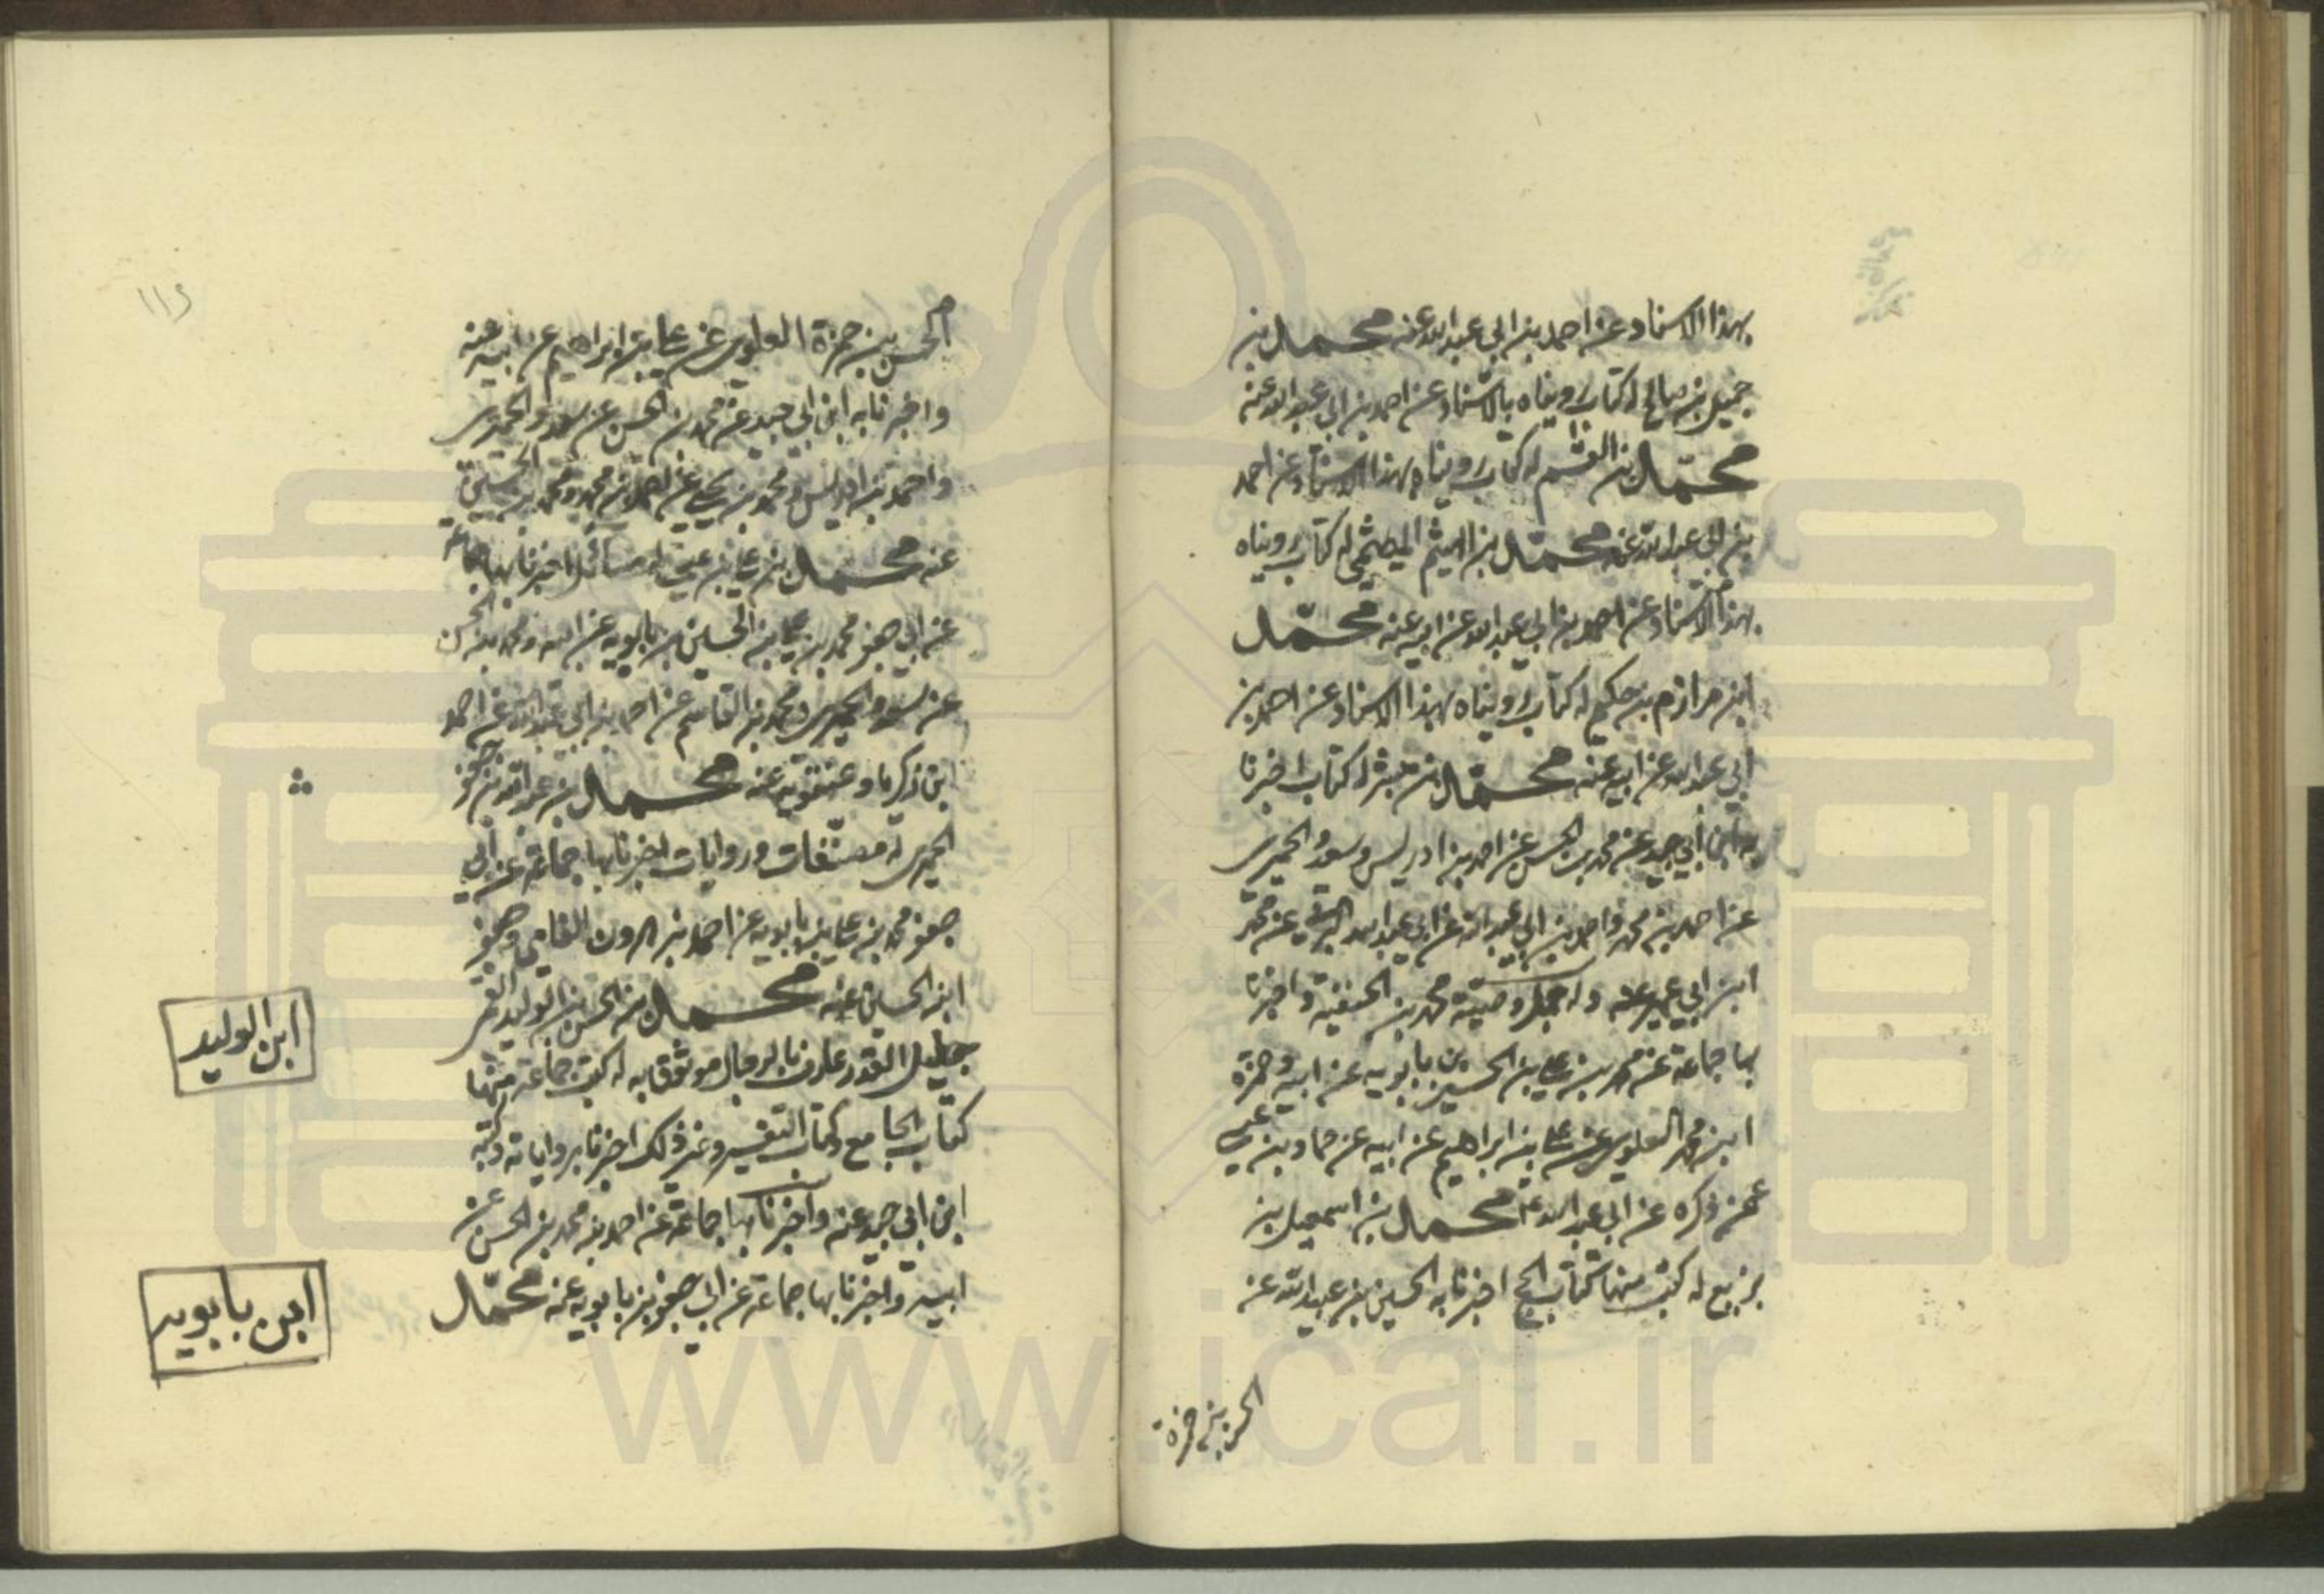 بهذا الاسناد عن احمد بن ابي عبد الله عنه محمد بن
جميل بن صالح له كتاب رويناه بالاسناد عن احمد بن ابي عبد الله عنه
محمد بن القسم له كتاب رويناه بهذا الاسناد عن احمد
بن ابي عبد الله عنه محمد بن الهيثم له كتاب رويناه
بهذا الاسناد عن احمد بن ابي عبد الله عن ابيه عنه محمد
ابن مرازم بن حكيم له كتاب رويناه بهذا الاسناد عن احمد بن
ابي عبد الله عن ابيه عنه محمد بن ميشر له كتاب اخبرنا
به ابن ابي جيد عن محمد بن الحسن عن احمد بن ادريس وسعد والحميرى
عن احمد بن محمد واحمد بن ابي عبد الله عن ابي عبد الله البرقي عن محمد
ابن ابي عمير عنه وله وصية محمد بن الحنفية واخبرنا
بها جماعة عن محمد بن علي بن الحسين بن بابويه عن ابيه وحمزة
ابن محمد العلوى عن علي بن ابراهيم عن ابيه عن حماد بن عيسى
عمن ذكره عن ابي عبد الله محمد بن اسمعيل بن
بزيع له كتب منها كتاب الحج اخبرنا به الحسين بن عبيد الله عن
الحسن بن حمزة
١١٤
الحسن بن حمزة العلوى عن علي بن ابراهيم عن ابيه عنه
واخبرنا به ابن ابي جيد عن محمد بن الحسن عن سعد والحميرى
واحمد بن ادريس ومحمد بن يحيى عن احمد بن محمد ومحمد بن الحسين
عنه محمد بن علي بن عيسى له مسائل اخبرنا بها جماعة
عن ابي جعفر محمد بن علي بن الحسين بن بابويه عن ابيه ومحمد بن الحسن
عن سعد والحميرى ومحمد بن القاسم عن احمد بن ابي عبد الله عن احمد
ابن ذكريا وعن عنه محمد بن عبد الله بن جعفر
الحميرى له مصنفات وروايات اخبرنا بها جماعة عن ابي
جعفر محمد بن علي بن بابويه عن احمد بن هرون الفامي وجعفر
ابن الحسين عنه محمد بن الحسن بن الوليد القمى
جليل القدر عارف بالرجال موثوق به له كتب جماعة منها
كتاب الجامع وكتاب التفسير وغير ذلك اخبرنا برواياته وكتبه
ابن ابي جيد عنه واخبرنا بها جماعة عن احمد بن محمد بن الحسن عن
ابيه واخبرنا بها جماعة عن ابي جعفر بن بابويه عنه محمد
ابن الوليد
ابن بابويه
www.ical.ir